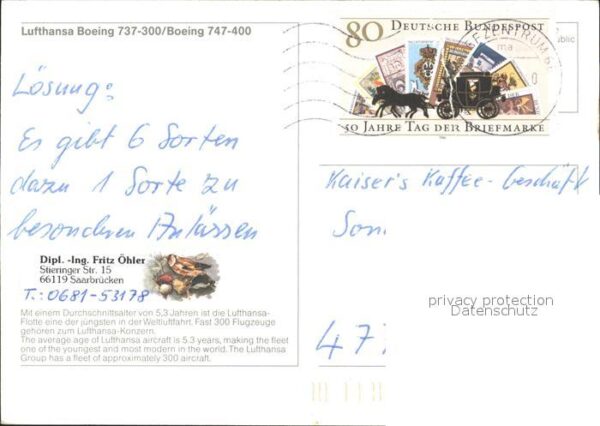 Lufthansa Boeing 737-300/Boeing 747-400
Lösung:
Es gibt 6 Sorten
dazu 1 Sorte zu
besonderen Anlässen
Dipl. -Ing. Fritz Öhler
Stieringer Str. 15
66119 Saarbrücken
T.: 0681-53178
Mit einem Durchschnittsalter von 5,3 Jahren ist die Lufthansa-
Flotte eine der jüngsten in der Weltluftfahrt. Fast 300 Flugzeuge
gehören zum Lufthansa-Konzern.
The average age of Lufthansa aircraft is 5.3 years, making the fleet
one of the youngest and most modern in the world. The Lufthansa
Group has a fleet of approximately 300 aircraft.
80 DEUTSCHE BUNDESPOST
50 JAHRE TAG DER BRIEFMARKE
Kaiser's Kaffee-Geschäft
Son
privacy protection
Datenschutz
477